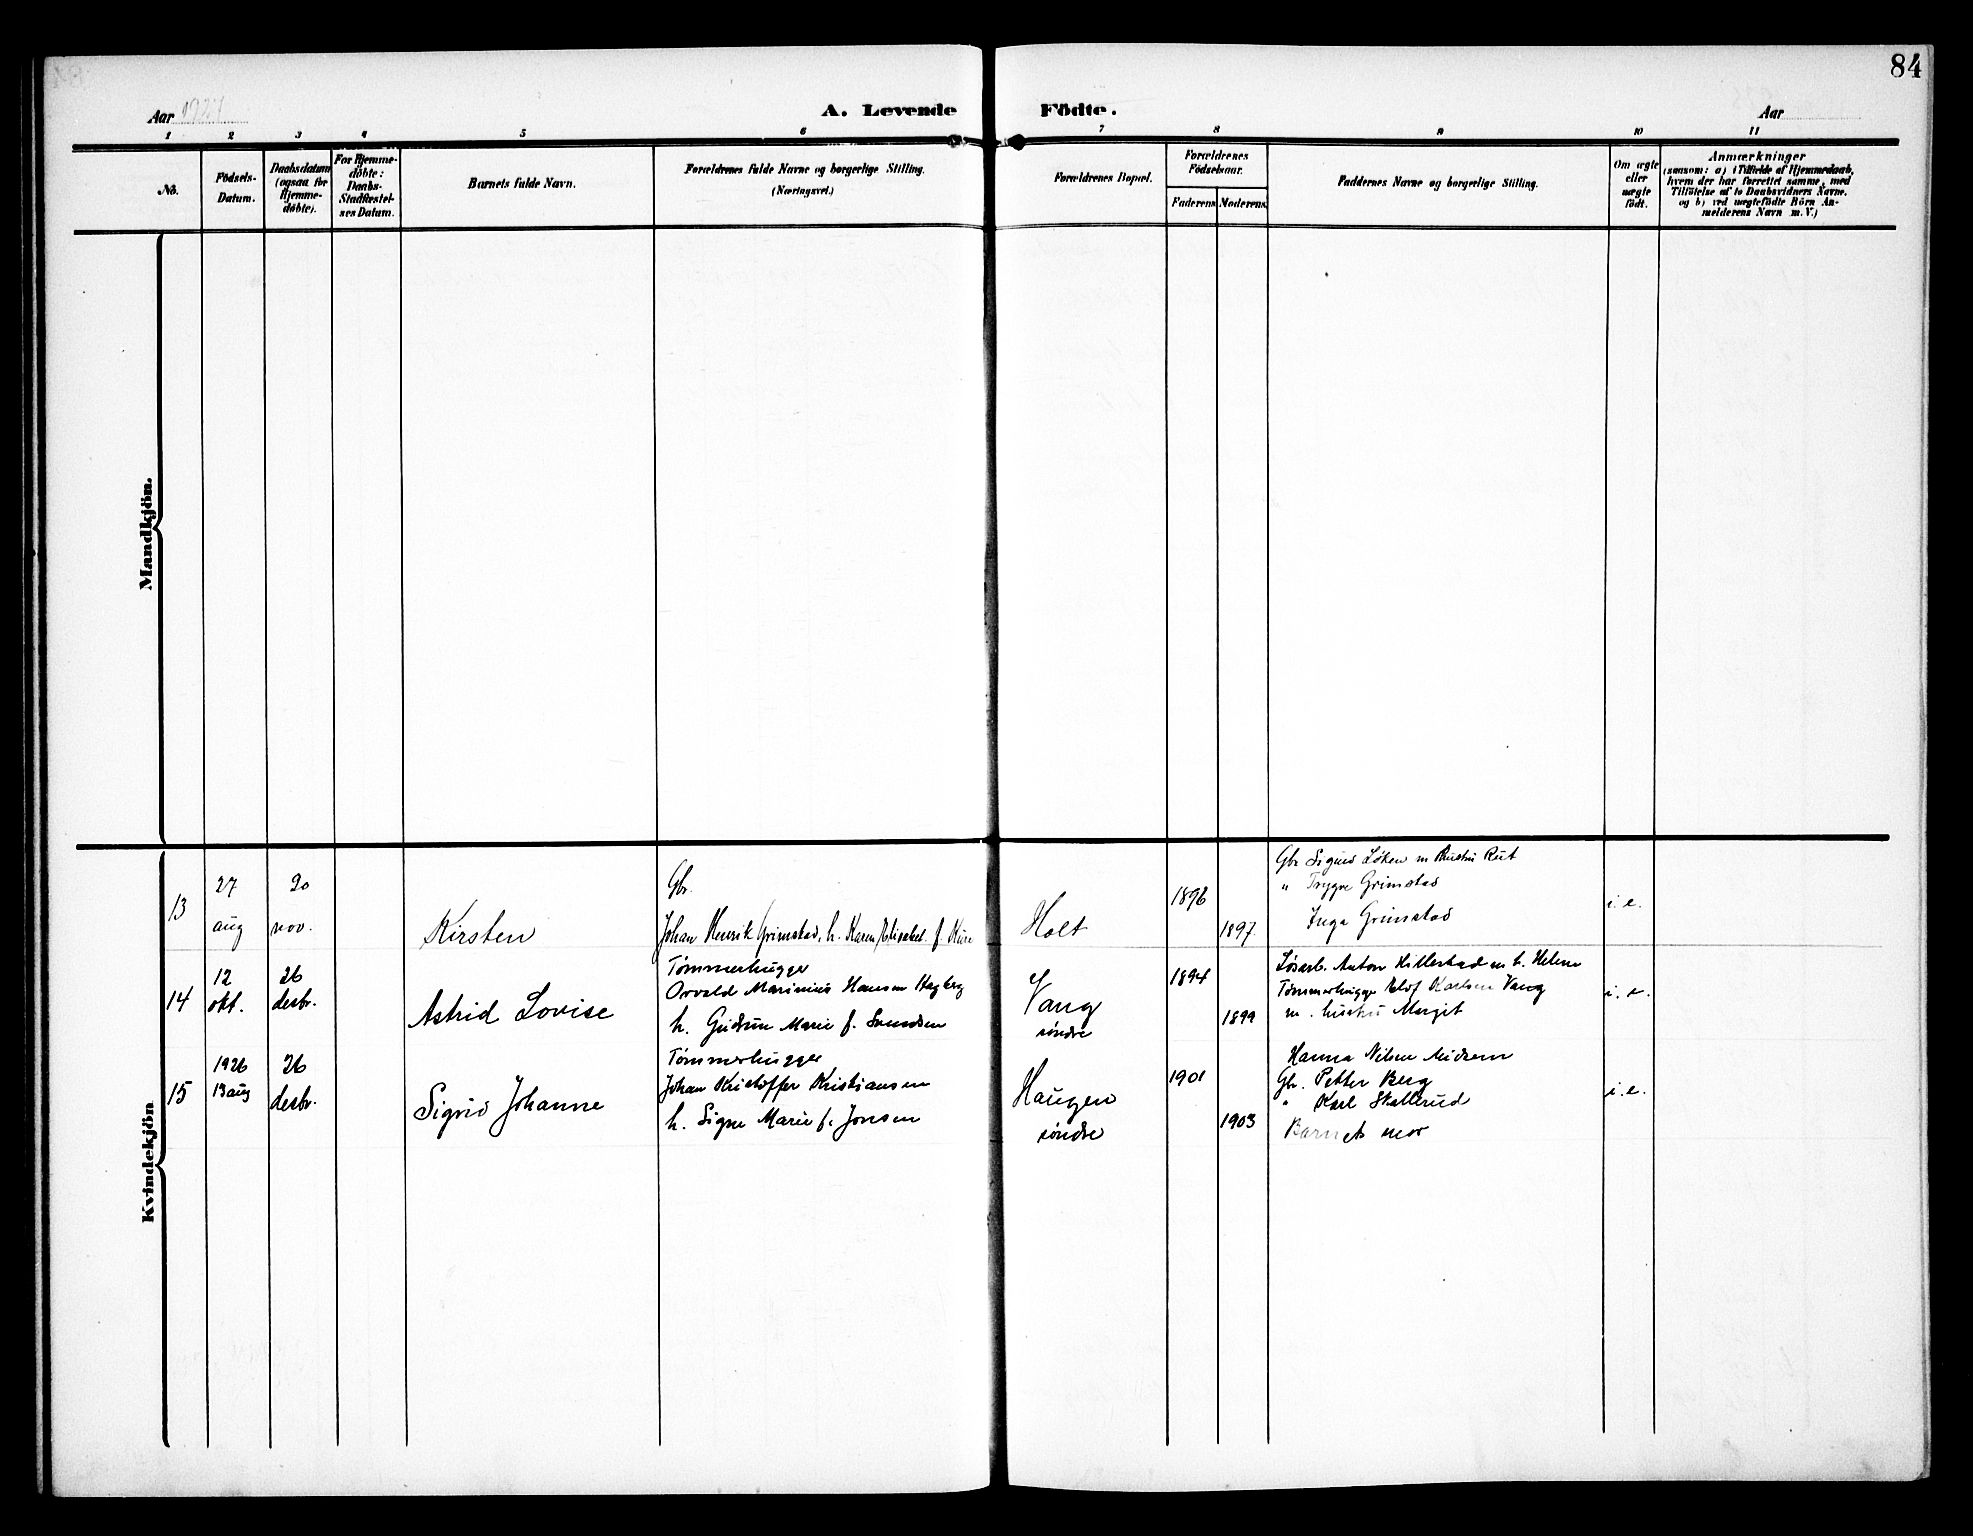 84
Aar 1927
A. Levende Födte.
Aar
1 2 3 4 5 6 7 8 9 10 11
No.
Födsels-Datum.
Daabsdatum (ogsaa for Hjemme-döbte).
For Hjemme-döbte: Daabs-Stadfæstel-ses Datum.
Barnets fulde Navn.
Forældrenes fulde Navne og borgerlige Stilling. (Næringsvei.)
Forældrenes Bopæl.
Forældrenes Födselsaar.
Faderens Moderens
Faddernes Navne og borgerlige Stilling.
Om ægte eller uægte födt.
Anmærkninger
(saasom: a) i Tilfælde af Hjemmedaab,
hvem der har forrettet samme, med
Tilföielse af to Daabsvidners Navne.
og b) ved uægtefödte Börn An-
melderens Navn m. V.)
Mandkjön.
Kvindekjön
13
27 aug
20 nov.
Kirsten
Gbr.
Johan Henrik Grimstad, h. Karen Elisabet f.
Holt
1896
1897
Gbr Sigurd Løken m hustru Rut
" Trygve Grimstad
Inga Grimstad
i. e.
14
12 okt.
26 desbr.
Astrid Lovise
Tømmerhugger
Osvald Marinius Hansen Hagberg
h. Gudrun Marie f. Svendsen
Vang søndre
1894
1899
Løsarb. Anton Hillestad m h. Helene
Tømmerhugger Olof Karlsen Vang
m. hustru Margit
i. e.
15
1926
13 aug
26 desbr.
Sigrid Johanne
Tømmerhugger
Johan Kristoffer Kristiansen
h. Signe Marie f. Jonsen
Haugen søndre
1901
1903
Hanna Nilsen
Gbr. Petter Berg
" Karl Skallerud
Barnets mor
i. e.